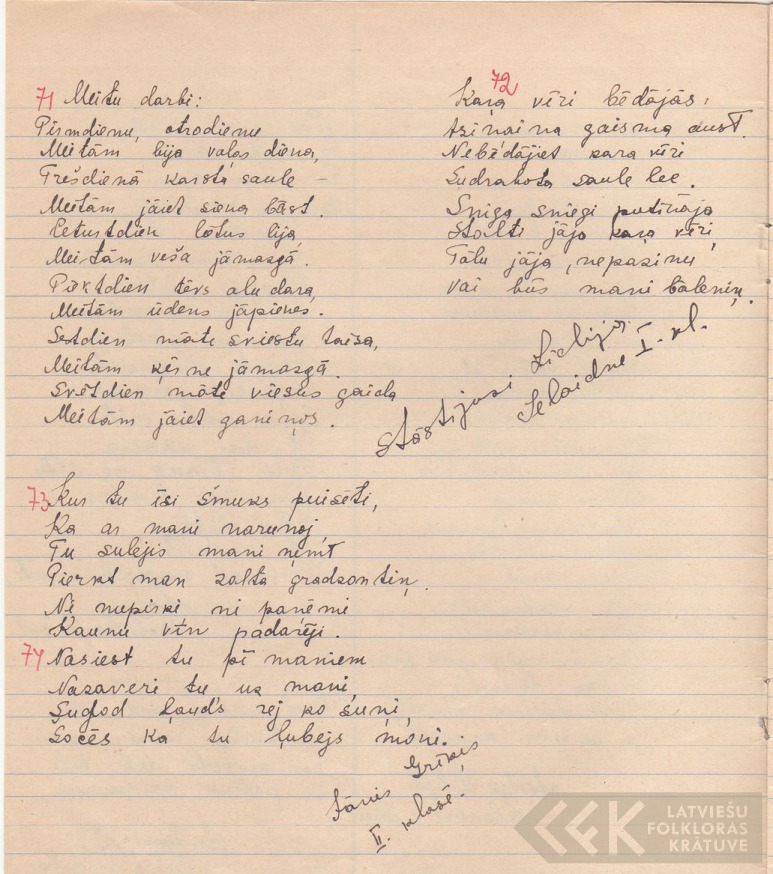 71 Meitu darbi:
Pirmdienu, otrodienu
Meitām bija vaļas diena,
Trešdienā karstā saule
Meitām jāiet siena bāst.
Ceturtdien lōtus lija,
Meitām veša jāmazgā.
Piektdien tēvs alu dara,
Meitām ūdens jāpienes.
Sestdien māte sviestu taisa,
Meitām ķērne jāmazgā.
Svētdien māte viesus gaida
Meitām jāiet ganiņos.
72
Kaŗa vēri bēdājās,
gaisma aust.
Nebēdājiet kara vēri
Sudrabota saule lec.
Sniga sniegi putināja
Stalti jāja kaŗa vēri,
Tālu jāja, nepazinu
Vai būs mani bāleniņ.
Stāstijusi Lidija
I. kl.
73 Kur tu īsi šmuks puisēti,
Ka ar mani narunoj,
Tu sulējis mani ņemt
Pierkt man zalta gradzontiņ.
Ni nupirki ni paņēmi
Kaunu vīn padarēji.
74 Nasiest tu pī maniem
Nazaveri tu uz mani,
Šugod ļauds rej ko suņi,
Socēs ka tu ļubejs moni.
Jānis Grīķis
II. klasē.
LATVIEŠU
FOLKLORAS
KRĀTUVE